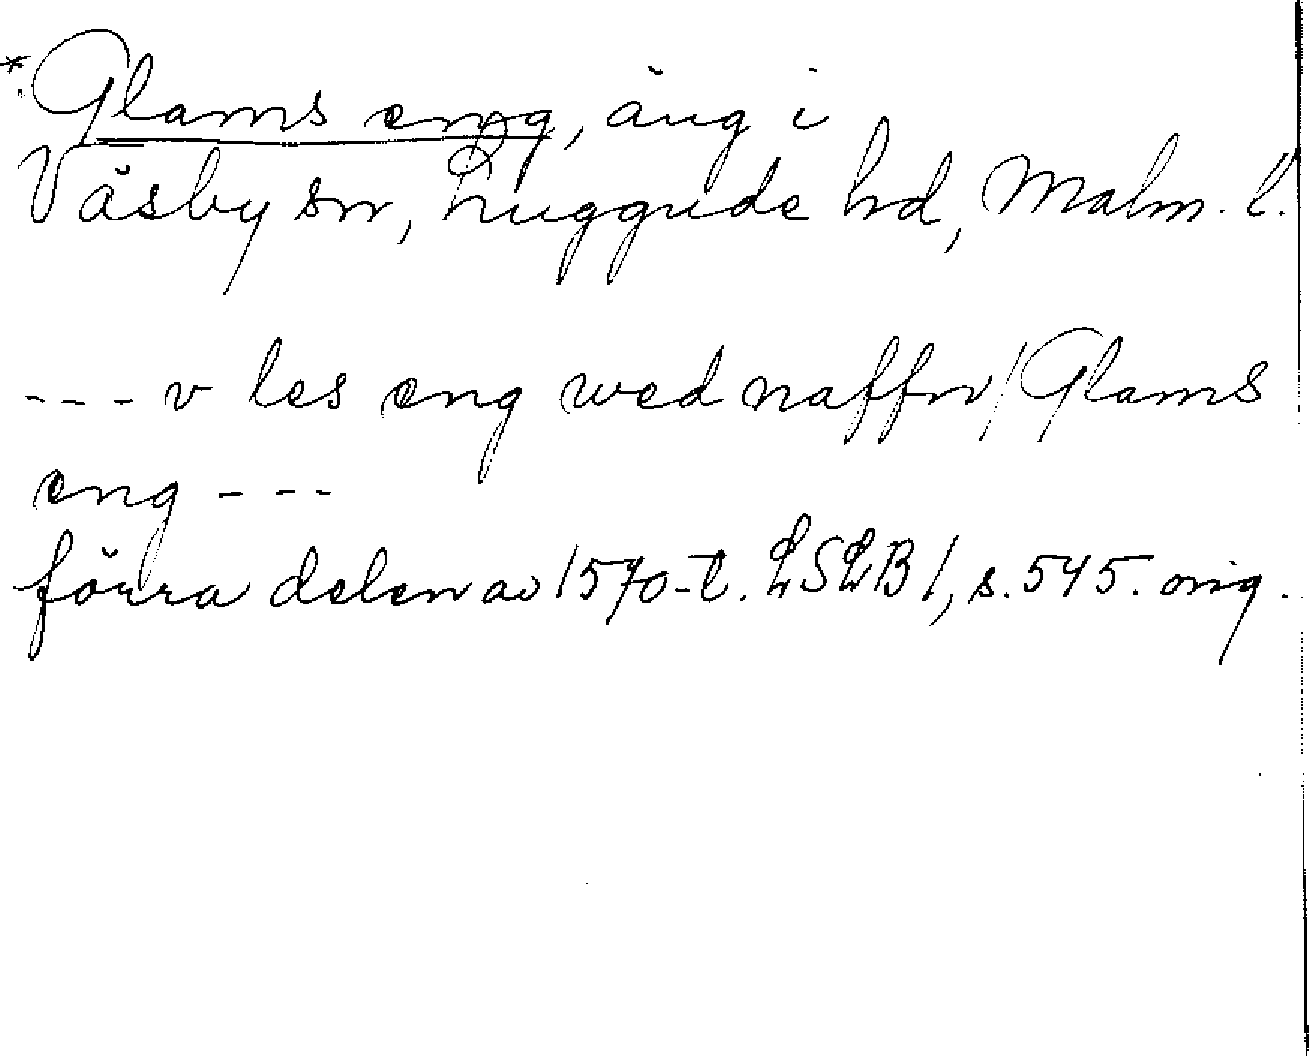 *Glams eng, äng i
Väsby sn, Luggude hd, Malm. l.
--- v les eng wed naffn / Glams
eng ---
förra delen av 1570-t. LSLB 1, s. 545. orig.